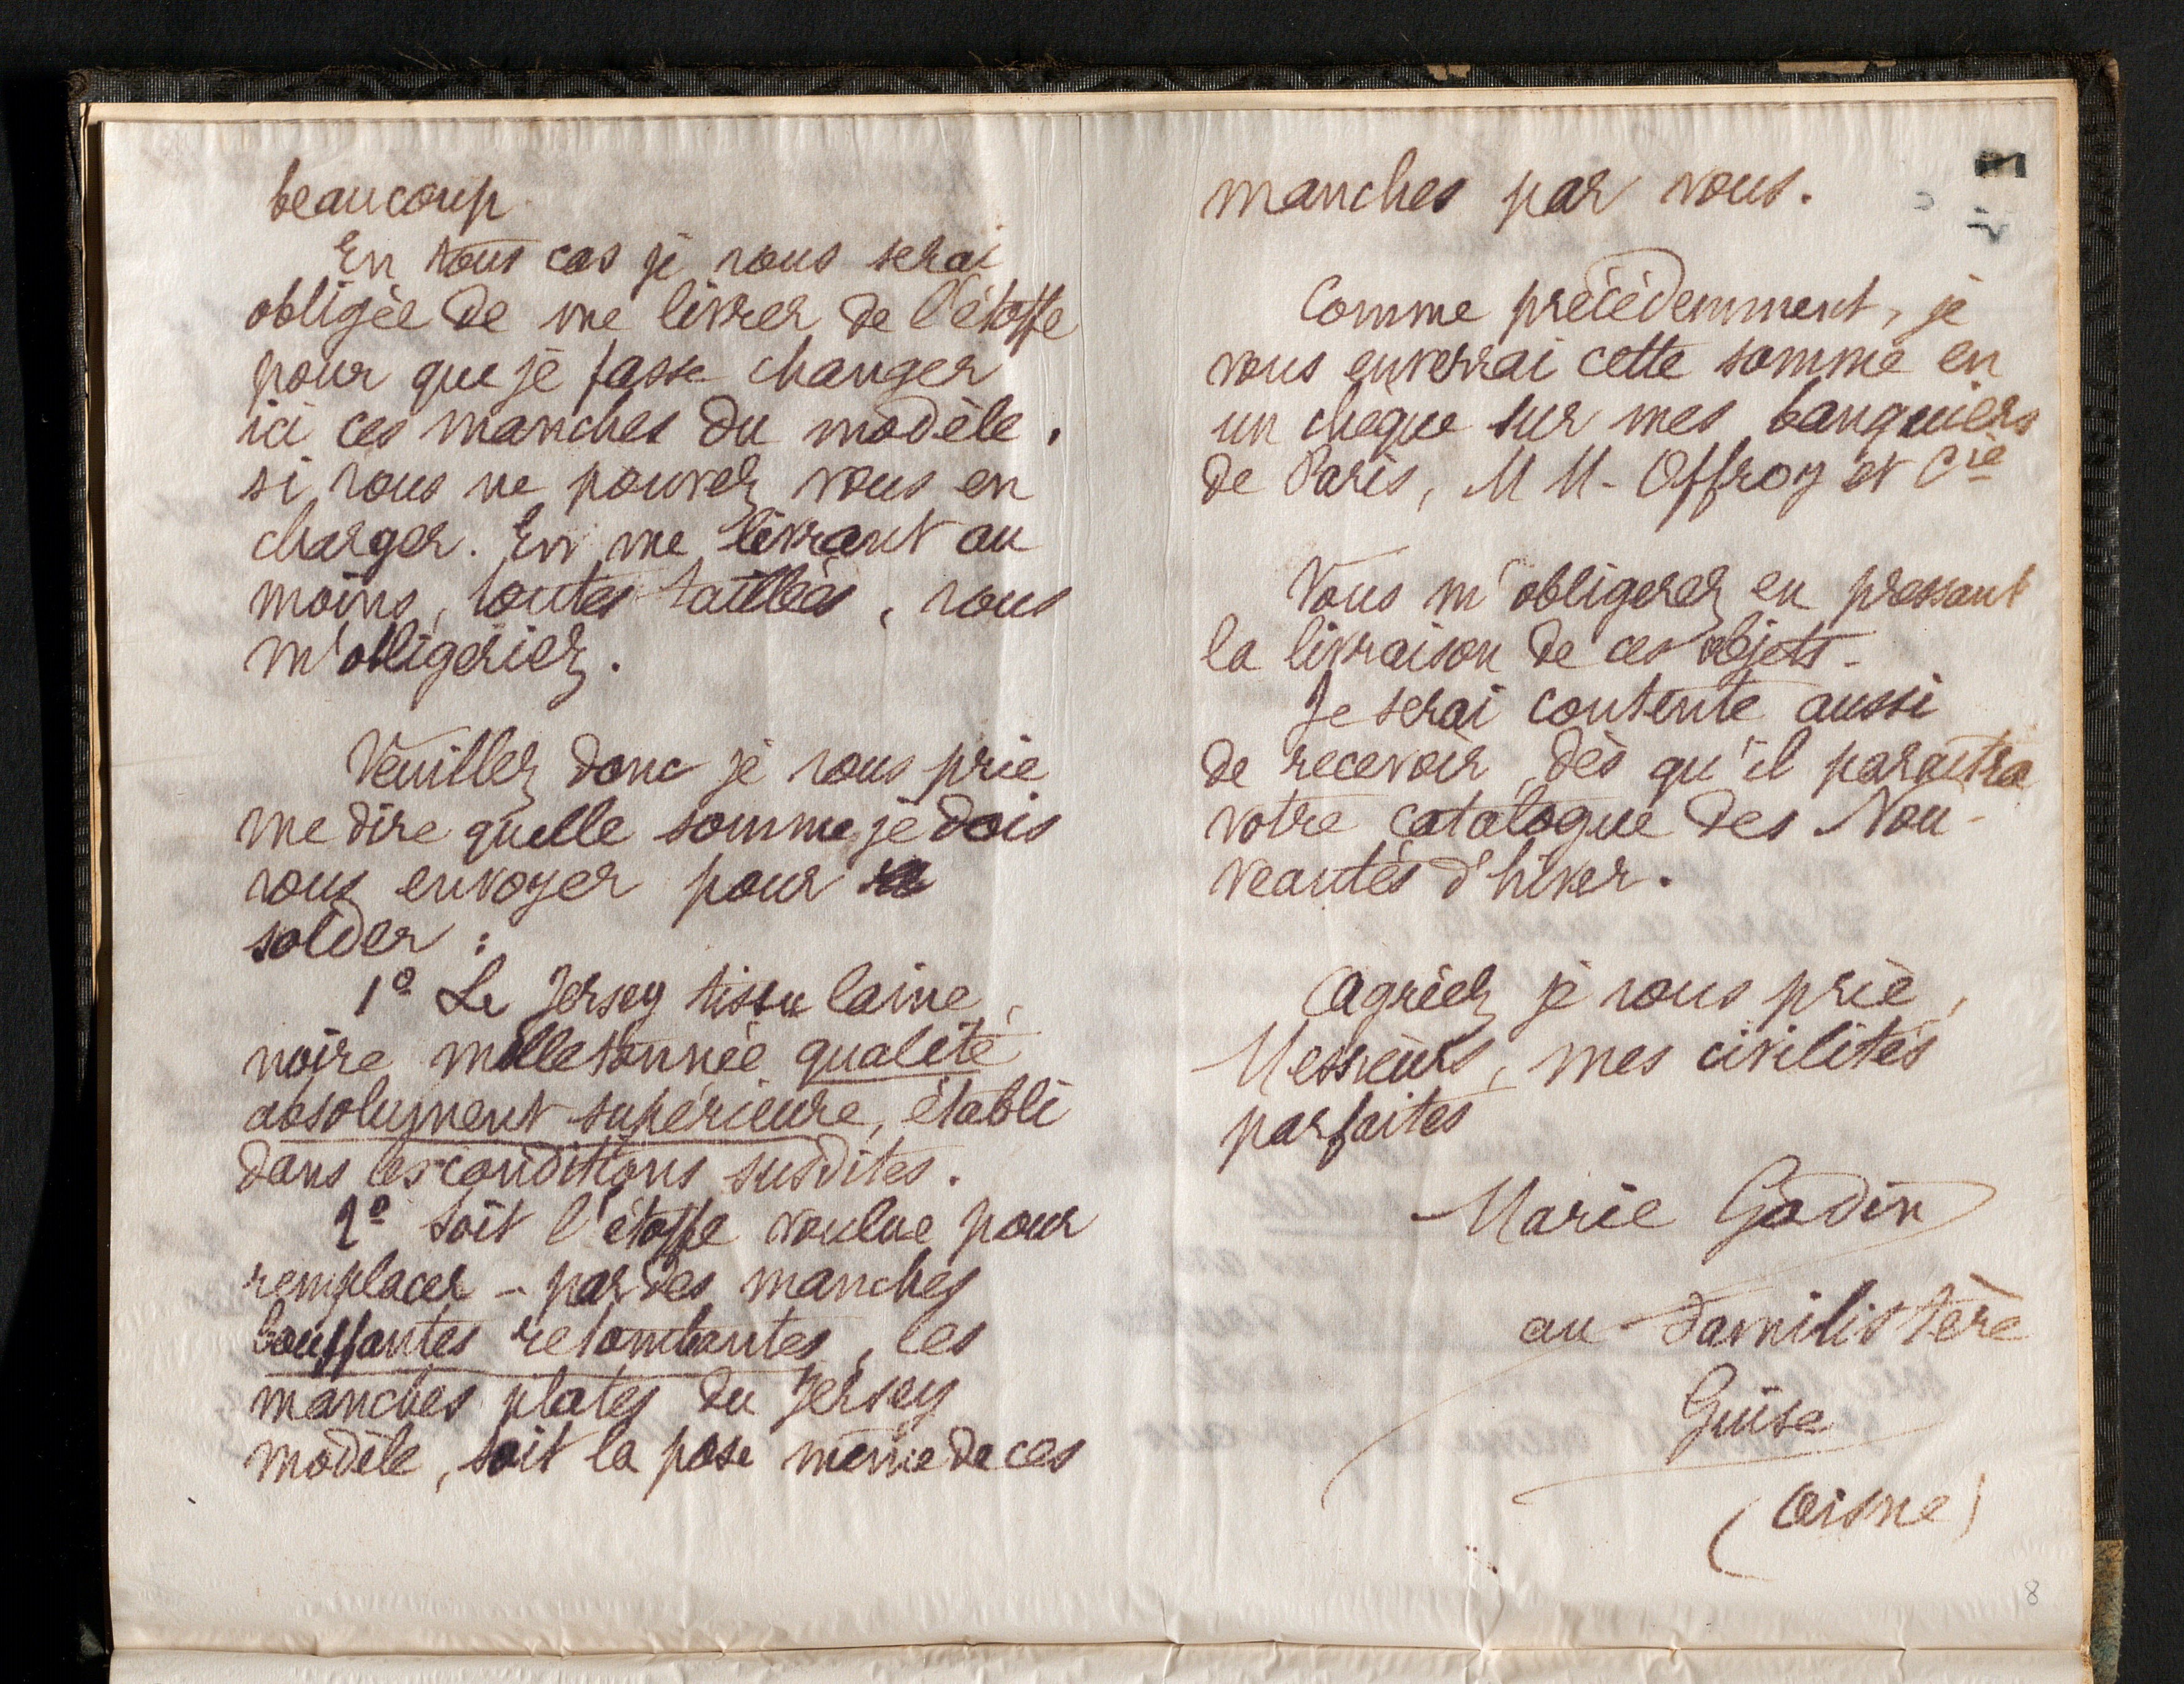 beaucoup
En tous cas je vous serai
obligée de me livrer de l'étoffe
pour que je fasse changer
ici ces manches du modèle,
si vous ne pouvez vous en
charger. En me livrant au
moins, toutes taillées, vous
m'obligeriez.
Veuillez donc je vous prie
me dire quelle somme je dois
vous envoyer pour
solder :
1º Le Jersey tissu laine,
noire molletonnée qualité
absolument supérieure, établi
dans les conditions susdites.
2º Soit l'étoffe voulue pour
remplacer - par des manches
bouffantes retombantes, les
manches plates du Jersey
modèle, soit la pose même de ces
manches par vous.
Comme précédemment, je
vous enverrai cette somme en
un chèque sur mes banquiers
de Paris, MM. Offroy et Cie
Vous m'obligerez en pressant
la livraison de ces objets.
Je serai contente aussi
de recevoir, dès qu'il paraîtra
votre catalogue des Nou-
veautés d'hiver.
Agréez je vous prie,
Messieurs, mes civilités
parfaites
Marie Godin
au Familistère
Guise
(Aisne)
8